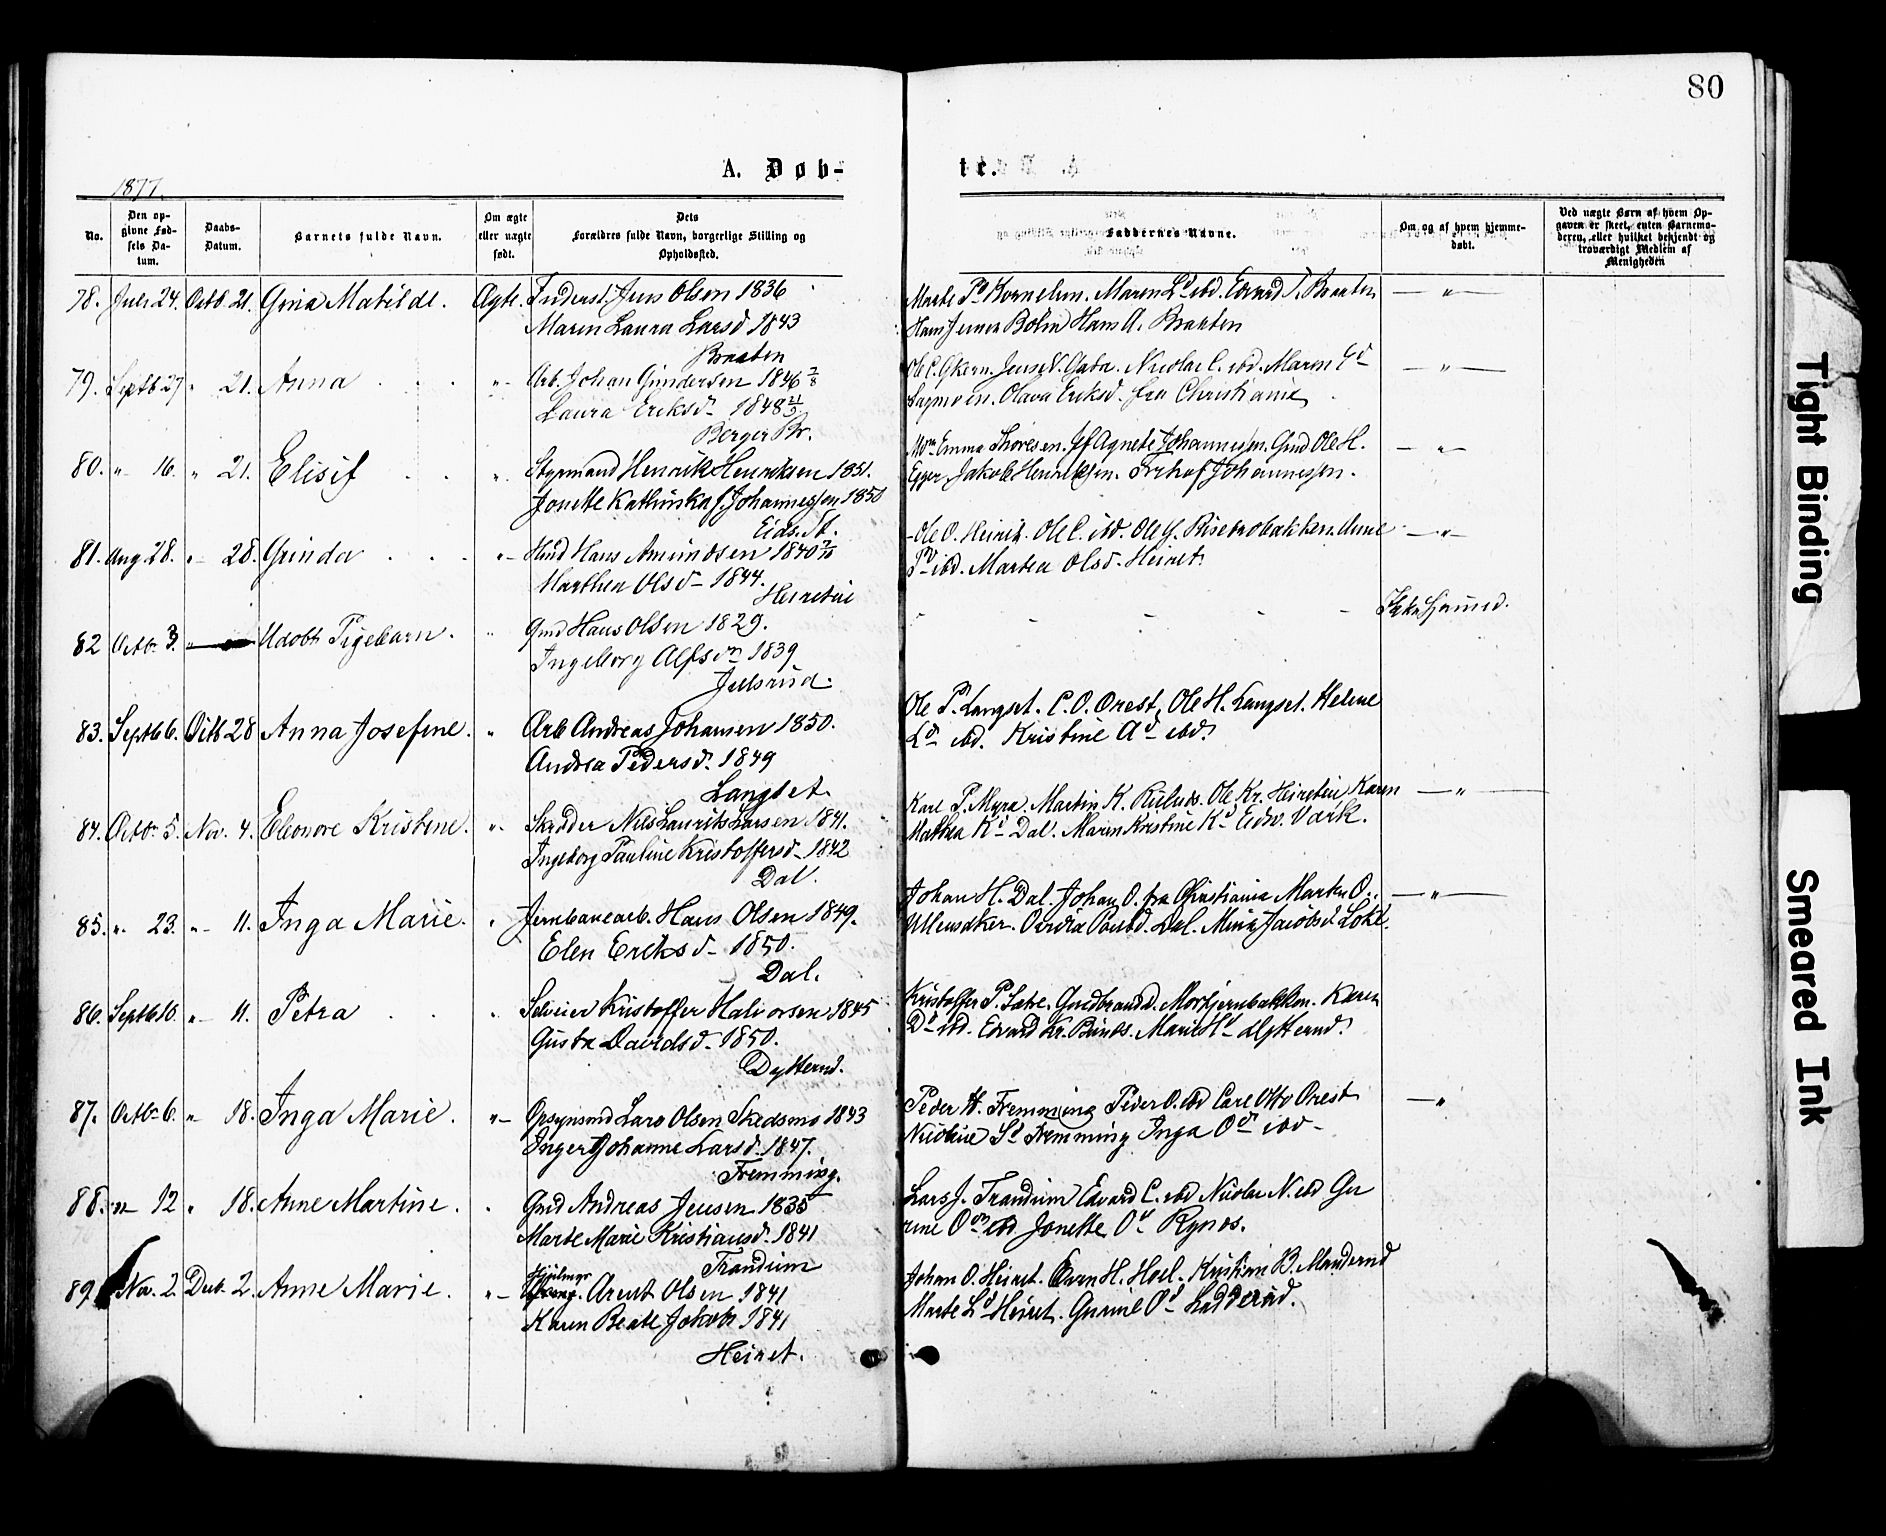 80
A. Døb-
te.
1877.
No.
Den op-
givne Fød-
sels Da-
tum.
Daabs-
Datum.
Barnets fulde Navn.
Om ægte
eller uægte
født.
Dets
Forældres fulde Navn, borgerlige Stilling og
Opholdssted.
Faddernes Navne.
Om og af hvem hjemme-
døbt.
Ved uægte Børn af hvem Op-
gaven er skeet, enten Barnemo-
deren, eller hvilket bekjendt og
troværdigt Medlem af
Menigheden
78. Juli 24. Octb. 21. Gina Matilde. Ægte. Inderst. Jens Olsen 1836
Maren Laura Larsd 1843
Braaten
Marte Pd Kornelien. Maren Ld ibd. Edvard T. Braaten
Hans Jensen Bolin Hans A. Braaten
79. Septb 27 " 21. Anna "- Arb. Johan Gundersen 1846 7/8
Laura Eriksd- 1848
Berger Br.
Nicolai C. ibd. Maren Ed
Olava Eriksd. fra Christiania
80. " 16. " 21. Elisif " Styrmand Henrik Henriksen 1851.
Jonette Katinka f. Johannessen 1850
Eids. St.
Emma Thoresen. Agnete Johannessen. Gmd Ole H.
Egger. Jakob Henriksen. Johannessen.
81. Aug 28. "- 28. Ginda "- Hmd Hans Amundsen 1840
Marthea Olsd- 1844.
Heirstin
Ole O. Heirst. Ole C. ibd. Ole G. Risebrobakken. Anne
Pd ibd. Martea Olsd. Heiret.
82 Octbr 3. Udøbt Pigebarn. " Gmd Hans Olsen 1829.
Ingeborg Alfsdn 1839
Julsrud.
83. Septb 6. Octb 28 Anna Josefine. " Arb Andreas Johansen 1850.
Andrea Pedersd. 1849
Langset.
Ole P. Langset. C. O. Ørest. Ole H. Langset. Helene
Ld ibd. Kristine Ad ibd.
84. Octbr 5. Nov. 4. Eleonore Kristine. " Skrædder Nils Laurits Larsen 1841.
Ingeborg Pauline Kristoffersd- 1842
Dal.
Karl P. Myra. Martin K. Ole Kr. Heirstin Karen
Mathea Kd Dal. Maren Kristine Kd Eidsv. Værk.
85. " 23. "- 11. Inga Marie. " Jernbanearb. Hans Olsen 1849.
Elen Eriksd- 1850.
Dal.
Johan H. Dal. Johan O. fra Christiania Marten O.
Ullensaker. Dal. Mina Jacobsd Løke.
86. Septb 16. "- 11. Petra " Selveier Kristoffer Halvorsen 1845
Gusta Davidsd- 1850.
Dytterud.
Kristoffer P. Sætre. Gudbrand d. Morkjernbakken. Karen
Dd ibd. Edvard Kr. Marie Hd Dytterud.
87. Octbr 6. " 18. Inga Marie. "- Opsynsmd Lars Olsen Skedsmo 1843
Inger Johanne Larsd. 1847.
Fremming.
Peder H. Fremming Peder O. ibd Carl Otto Ørest
Nicoline Sd Fremming Inga Od ibd-
88. " 12 " 18. Anne Martine. " Gmd Andreas Jensen 1835
Marte Marie Kristiansd. 1841
Trandum
Lars J. Trandum Edvard C. ibd Nicolai N. ibd Gu
rine Odn ibd Jonette Od Rynes.
89 Nov. 2. Decb. 2. Anne Marie. "- Arent Olsen 1841
Karen Beate Jakobs 1841
Heiret.
Johan O. Heiret. Even H. Hoel. Kristian B. Manderud
Marte Ld Heiret. Gurine Od Ladderud.
Tight Binding
Smeared Ink